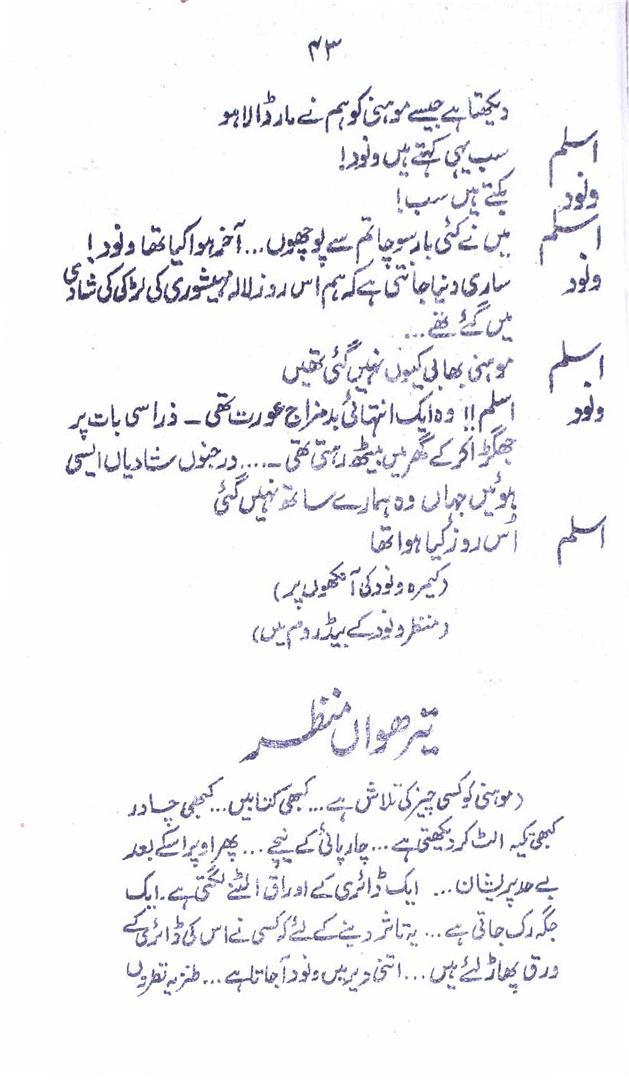 ۴۳
دیکھتا ہے جیسے موہنی کو ہم نے مار ڈالا ہو
اسلم سب یہی کہتے ہیں ونود!
ونود بکتے ہیں سب!
اسلم میں نے کئی بار سوچا تم سے پوچھوں... آخر ہوا کیا تھا ونود!
ونود ساری دنیا جانتی ہے کہ ہم اس روز لالہ مہیشوری کی لڑکی کی شادی
میں گئے تھے...
اسلم موہنی بھابی کیوں نہیں گئی تھیں
ونود اسلم!! وہ ایک انتہائی بدمزاج عورت تھی ۔ ذرا سی بات پر
جھگڑا کر کے گھر میں بیٹھ رہتی تھی ۔.... درجنوں شادیاں ایسی
ہوئیں جہاں وہ ہمارے ساتھ نہیں گئی
اسلم اُس روز کیا ہوا تھا
(کیمرہ ونود کی آنکھوں پر)
(منظر ونود کے بیڈ روم میں)
تیرھواں منظر
(موہنی کو کسی چیز کی تلاش ہے... کبھی کتابیں... کبھی چادر
کبھی تکیہ الٹ کر دیکھتی ہے... چارپائی کے نیچے... پھر اوپر اسکے بعد
بے حد پریشان... ایک ڈائری کے اوراق الٹنے لگتی ہے۔ ایک
جگہ رک جاتی ہے... یہ تاثر دینے کے لئے کہ کسی نے اس کی ڈائری کے
ورق پھاڑ لئے ہیں... اتنی دیر میں ونود آ جاتا ہے... طنزیہ نظروں